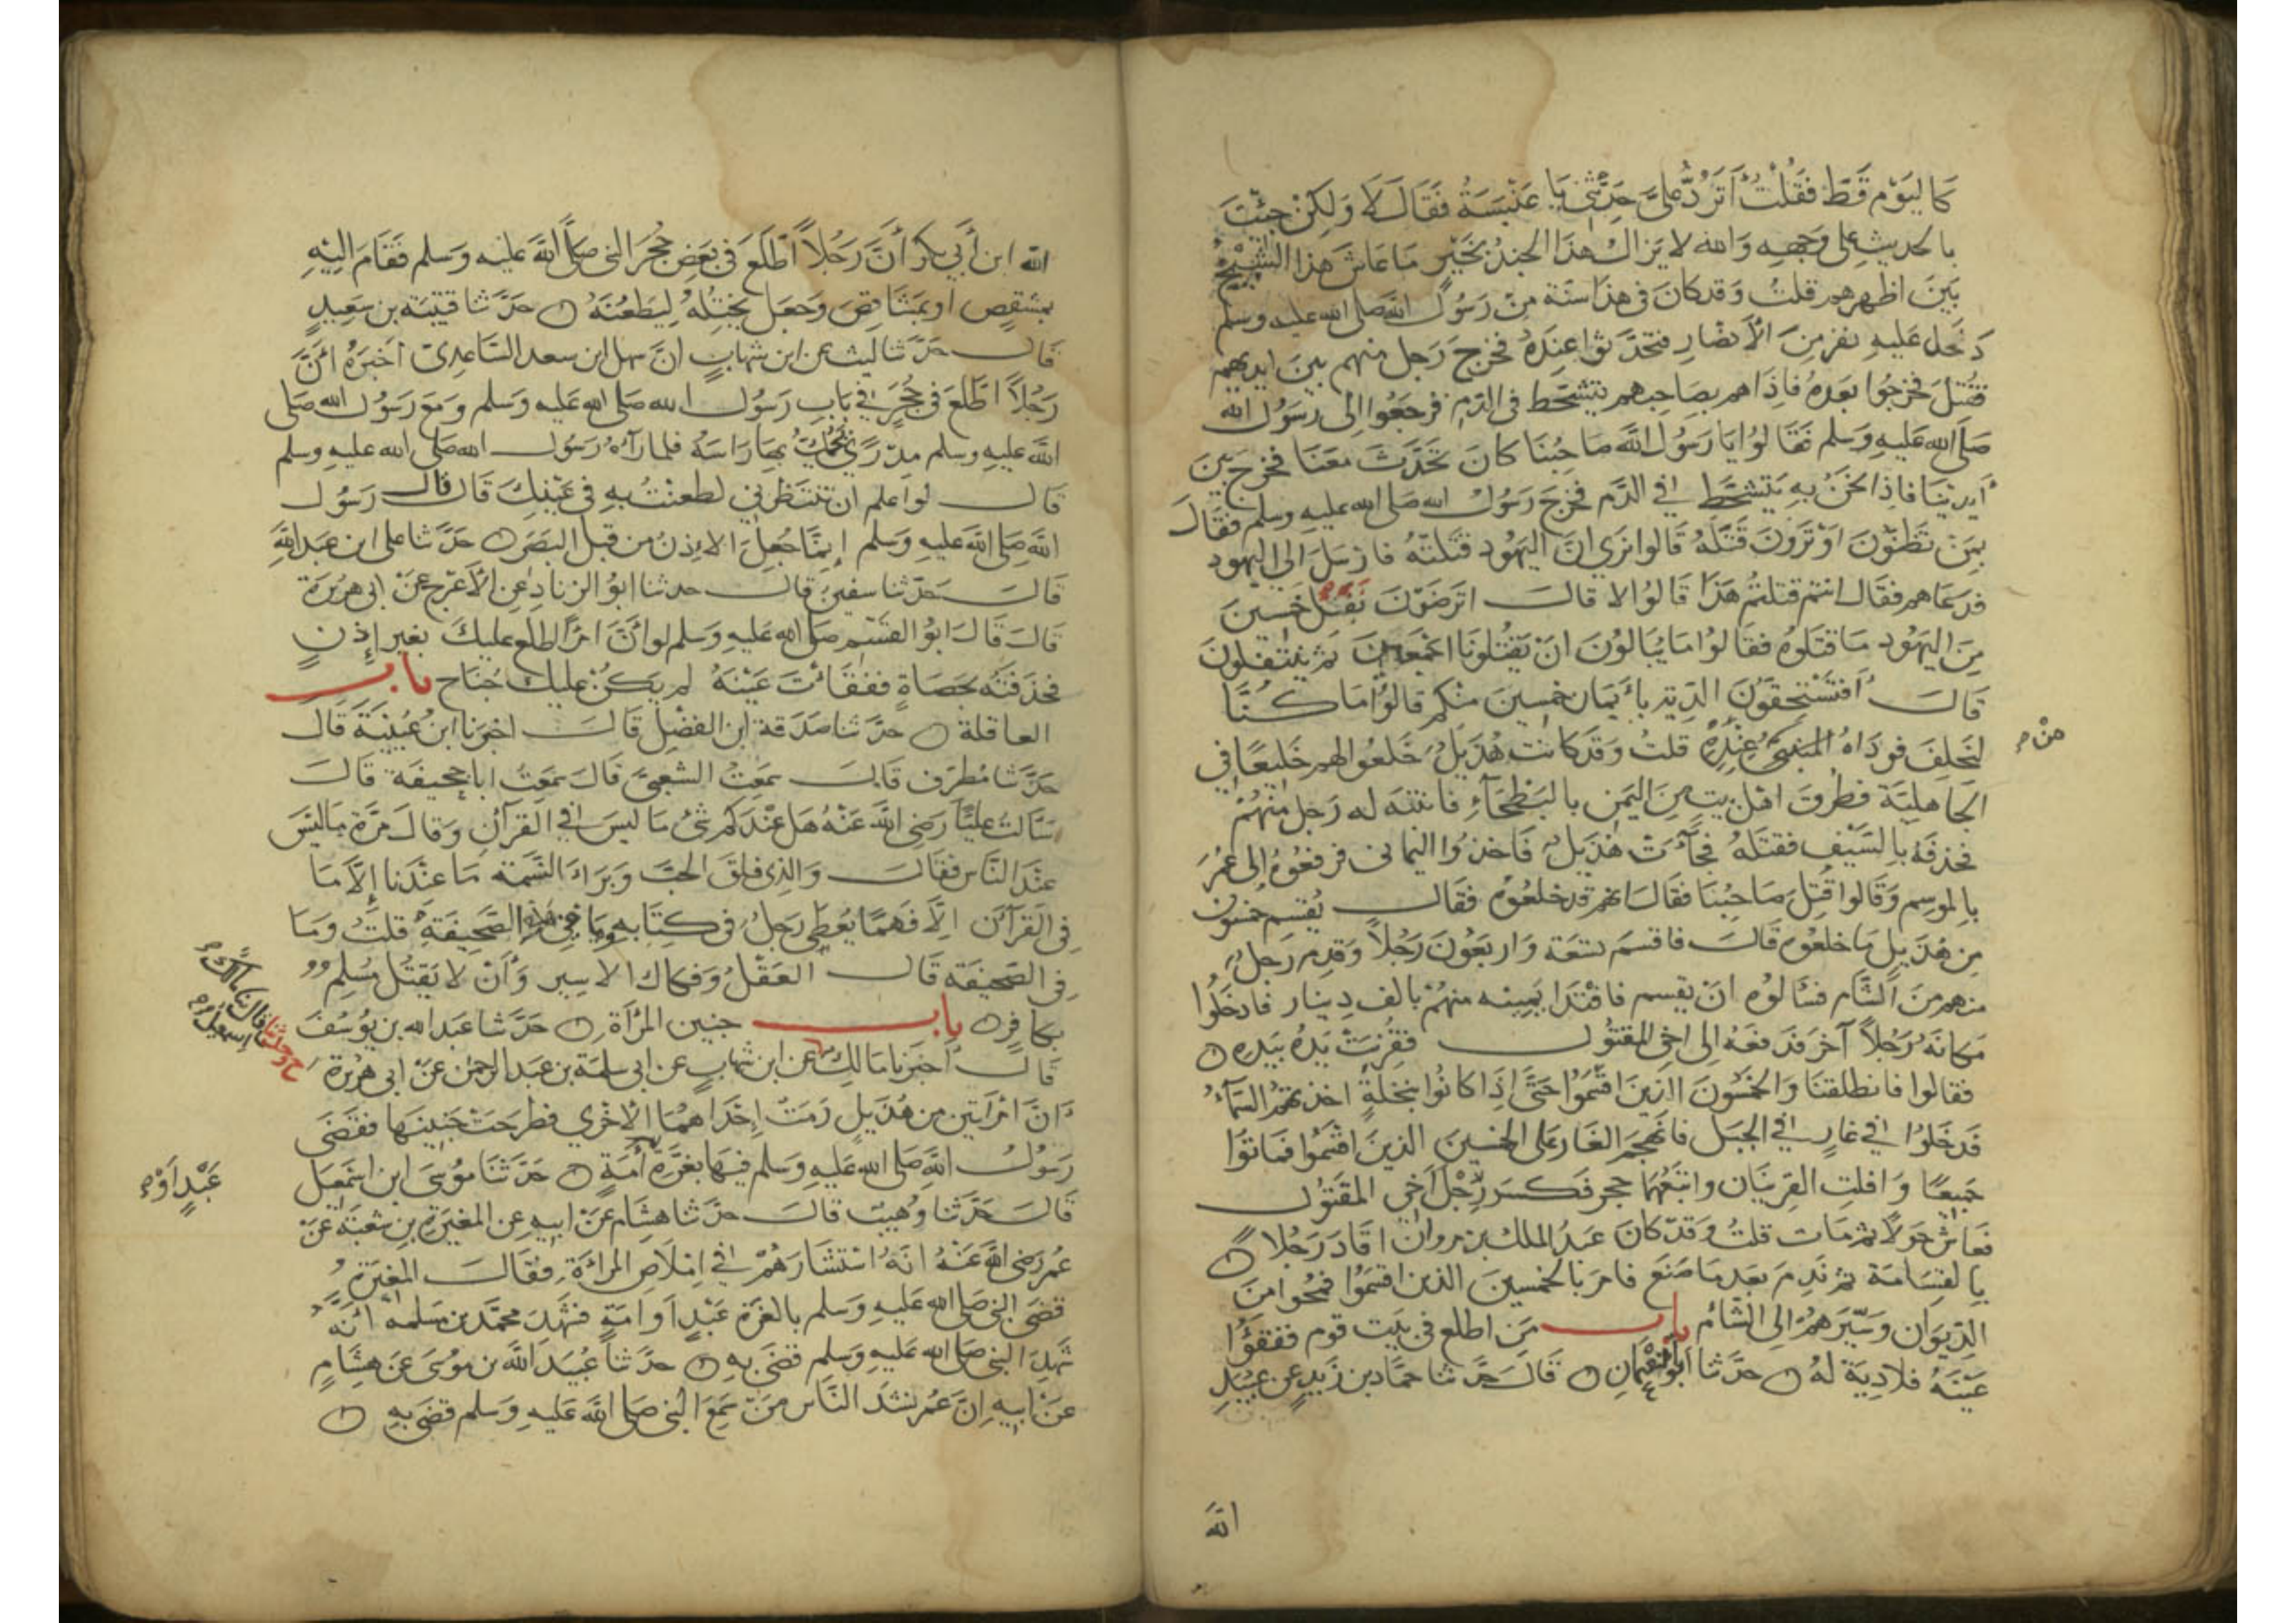 كاليوم قط فقلت أترد علي حدثني يا عنبسة فقال لا ولكن جئت
بالحديث على وجهه والله لا يزال هذا الجند بخير ما عاش هذا الشيخ
بين اظهرهم قلت وقد كان في هذا سنة من رسول الله صلى الله عليه وسلم
دخل عليه نفر من الأنصار فتحدثوا عنده فخرج رجل منهم بين ايديهم
فقتل فخرجوا بعده فاذا هم بصاحبهم يتشحط في الدم فرجعوا الى رسول الله
صلى الله عليه وسلم فقالوا يا رسول الله صاحبنا كان تحدث معنا فخرج بين
أيدينا فاذا نحن به يتشحط في الدم فخرج رسول الله صلى الله عليه وسلم فقال
بمن تظنون او ترون قتله قالوا نرى ان اليهود قتلته فارسل الى اليهود
فدعاهم فقال انتم قتلتم هذا قالوا لا قال اترضون نفل خمسين
من اليهود ما قتلوه فقالوا ما يبالون ان يقتلونا اجمعين ثم ينتفلون
قال أفتستحقون الدية بأيمان خمسين منكم قالوا ما كنا
لنحلف فوداه النبي عنده قلت وقد كانت هذيل خلعوا لهم خليعا في
من
الجاهلية فطرق اهل بيت من اليمن بالبطحاء فانتبه له رجل منهم
فحذفه بالسيف فقتله فجاءت هذيل فاخذوا اليماني فرفعوه الى عمر
بالموسم وقالوا قتل صاحبنا فقال انهم قد خلعوه فقال يقسم خمسون
من هذيل ما خلعوه قال فاقسم تسعة واربعون رجلا وقدم رجل
منهم من الشام فسألوه ان يقسم فافتدا يمينه منهم بالف دينار فادخلوا
مكانه رجلا آخر فدفعه الى اخي المقتول فقرنت يده بيده
فقالوا فانطلقنا والخمسون الذين اقسموا حتى إذا كانوا بنخلة اخذتهم السماء
فدخلوا في غار في الجبل فانهجم الغار على الخمسين الذين اقسموا فماتوا
جميعا وافلت القرينان واتبعهما حجر فكسر رجل أخي المقتول
فعاش حولا ثم مات قلت وقد كان عبد الملك بن مروان اقاد رجلا
بالقسامة ثم ندم بعد ما صنع فامر بالخمسين الذين اقسموا فمحوا من
الديوان وسيرهم الى الشام باب من اطلع في بيت قوم ففقؤا
عينه فلا دية له حدثنا ابو النعمان قال حدثنا حماد بن زيد عن عبيد
الله
الله ابن أبي بكر أن رجلا أطلع في بعض حجر النبي صلى الله عليه وسلم فقام اليه
بمشقص او بمشاقص وجعل يختله ليطعنه حدثنا قتيبة بن سعيد
قال حدثنا ليث عن ابن شهاب ان سهل ابن سعد الساعدي أخبره أن
رجلا اطلع في جحر في باب رسول الله صلى الله عليه وسلم ومع رسول الله صلى
الله عليه وسلم مدري يحك بها راسه فلما رآه رسول الله صلى الله عليه وسلم
قال لو اعلم ان تنتظرني لطعنت به في عينك قال قال رسول
الله صلى الله عليه وسلم إنما جعل الاذن من قبل البصر حدثنا علي ابن عبد الله
قال حدثنا سفين قال حدثنا ابو الزناد عن الأعرج عن ابي هريرة
قال قال ابو القسم صلى الله عليه وسلم لو أن امرأ اطلع عليك بغير إذن
فخذفته بحصاة ففقائت عينه لم يكن عليك جناح باب
العاقلة حدثنا صدقة ابن الفضل قال اخبرنا ابن عيينة قال
حدثنا مطرف قال سمعت الشعبي قال سمعت ابا جحيفة قال
سالت عليا رضي الله عنه هل عندكم شئ ما ليس في القرآن وقال مرة ما ليس
عند الناس فقال والذي فلق الحب وبرا النسمة ما عندنا إلا ما
في القرآن الا فهما يعطى رجل في كتابه وما في هذه الصحيفة قلت وما
في الصحيفة قال العقل وفكاك الاسير وأن لا يقتل مسلم
بكافر باب جنين المرأة حدثنا عبد الله بن يوسف
ح وحدثنا اسمعيل قال نا مالك
قال أخبرنا مالك عن ابن شهاب عن ابي سلمة بن عبد الرحمن عن ابي هريرة
ان امرأتين من هذيل رمت إحداهما الأخرى فطرحت جنينها فقضى
رسول الله صلى الله عليه وسلم فيها بغرة أمة حدثنا موسى ابن اسمعيل
عبد او
قال حدثنا وهيب قال حدثنا هشام عن ابيه عن المغيرة بن شعبة عن
عمر رضي الله عنه انه استشارهم في إملاص المراءة فقال المغيرة
قضى النبي صلى الله عليه وسلم بالغرة عبد او امة فشهد محمد بن مسلمة أنه
شهد النبي صلى الله عليه وسلم قضى به حدثنا عبيد الله بن موسى عن هشام
عن ابيه ان عمر نشد الناس من سمع النبي صلى الله عليه وسلم قضى به